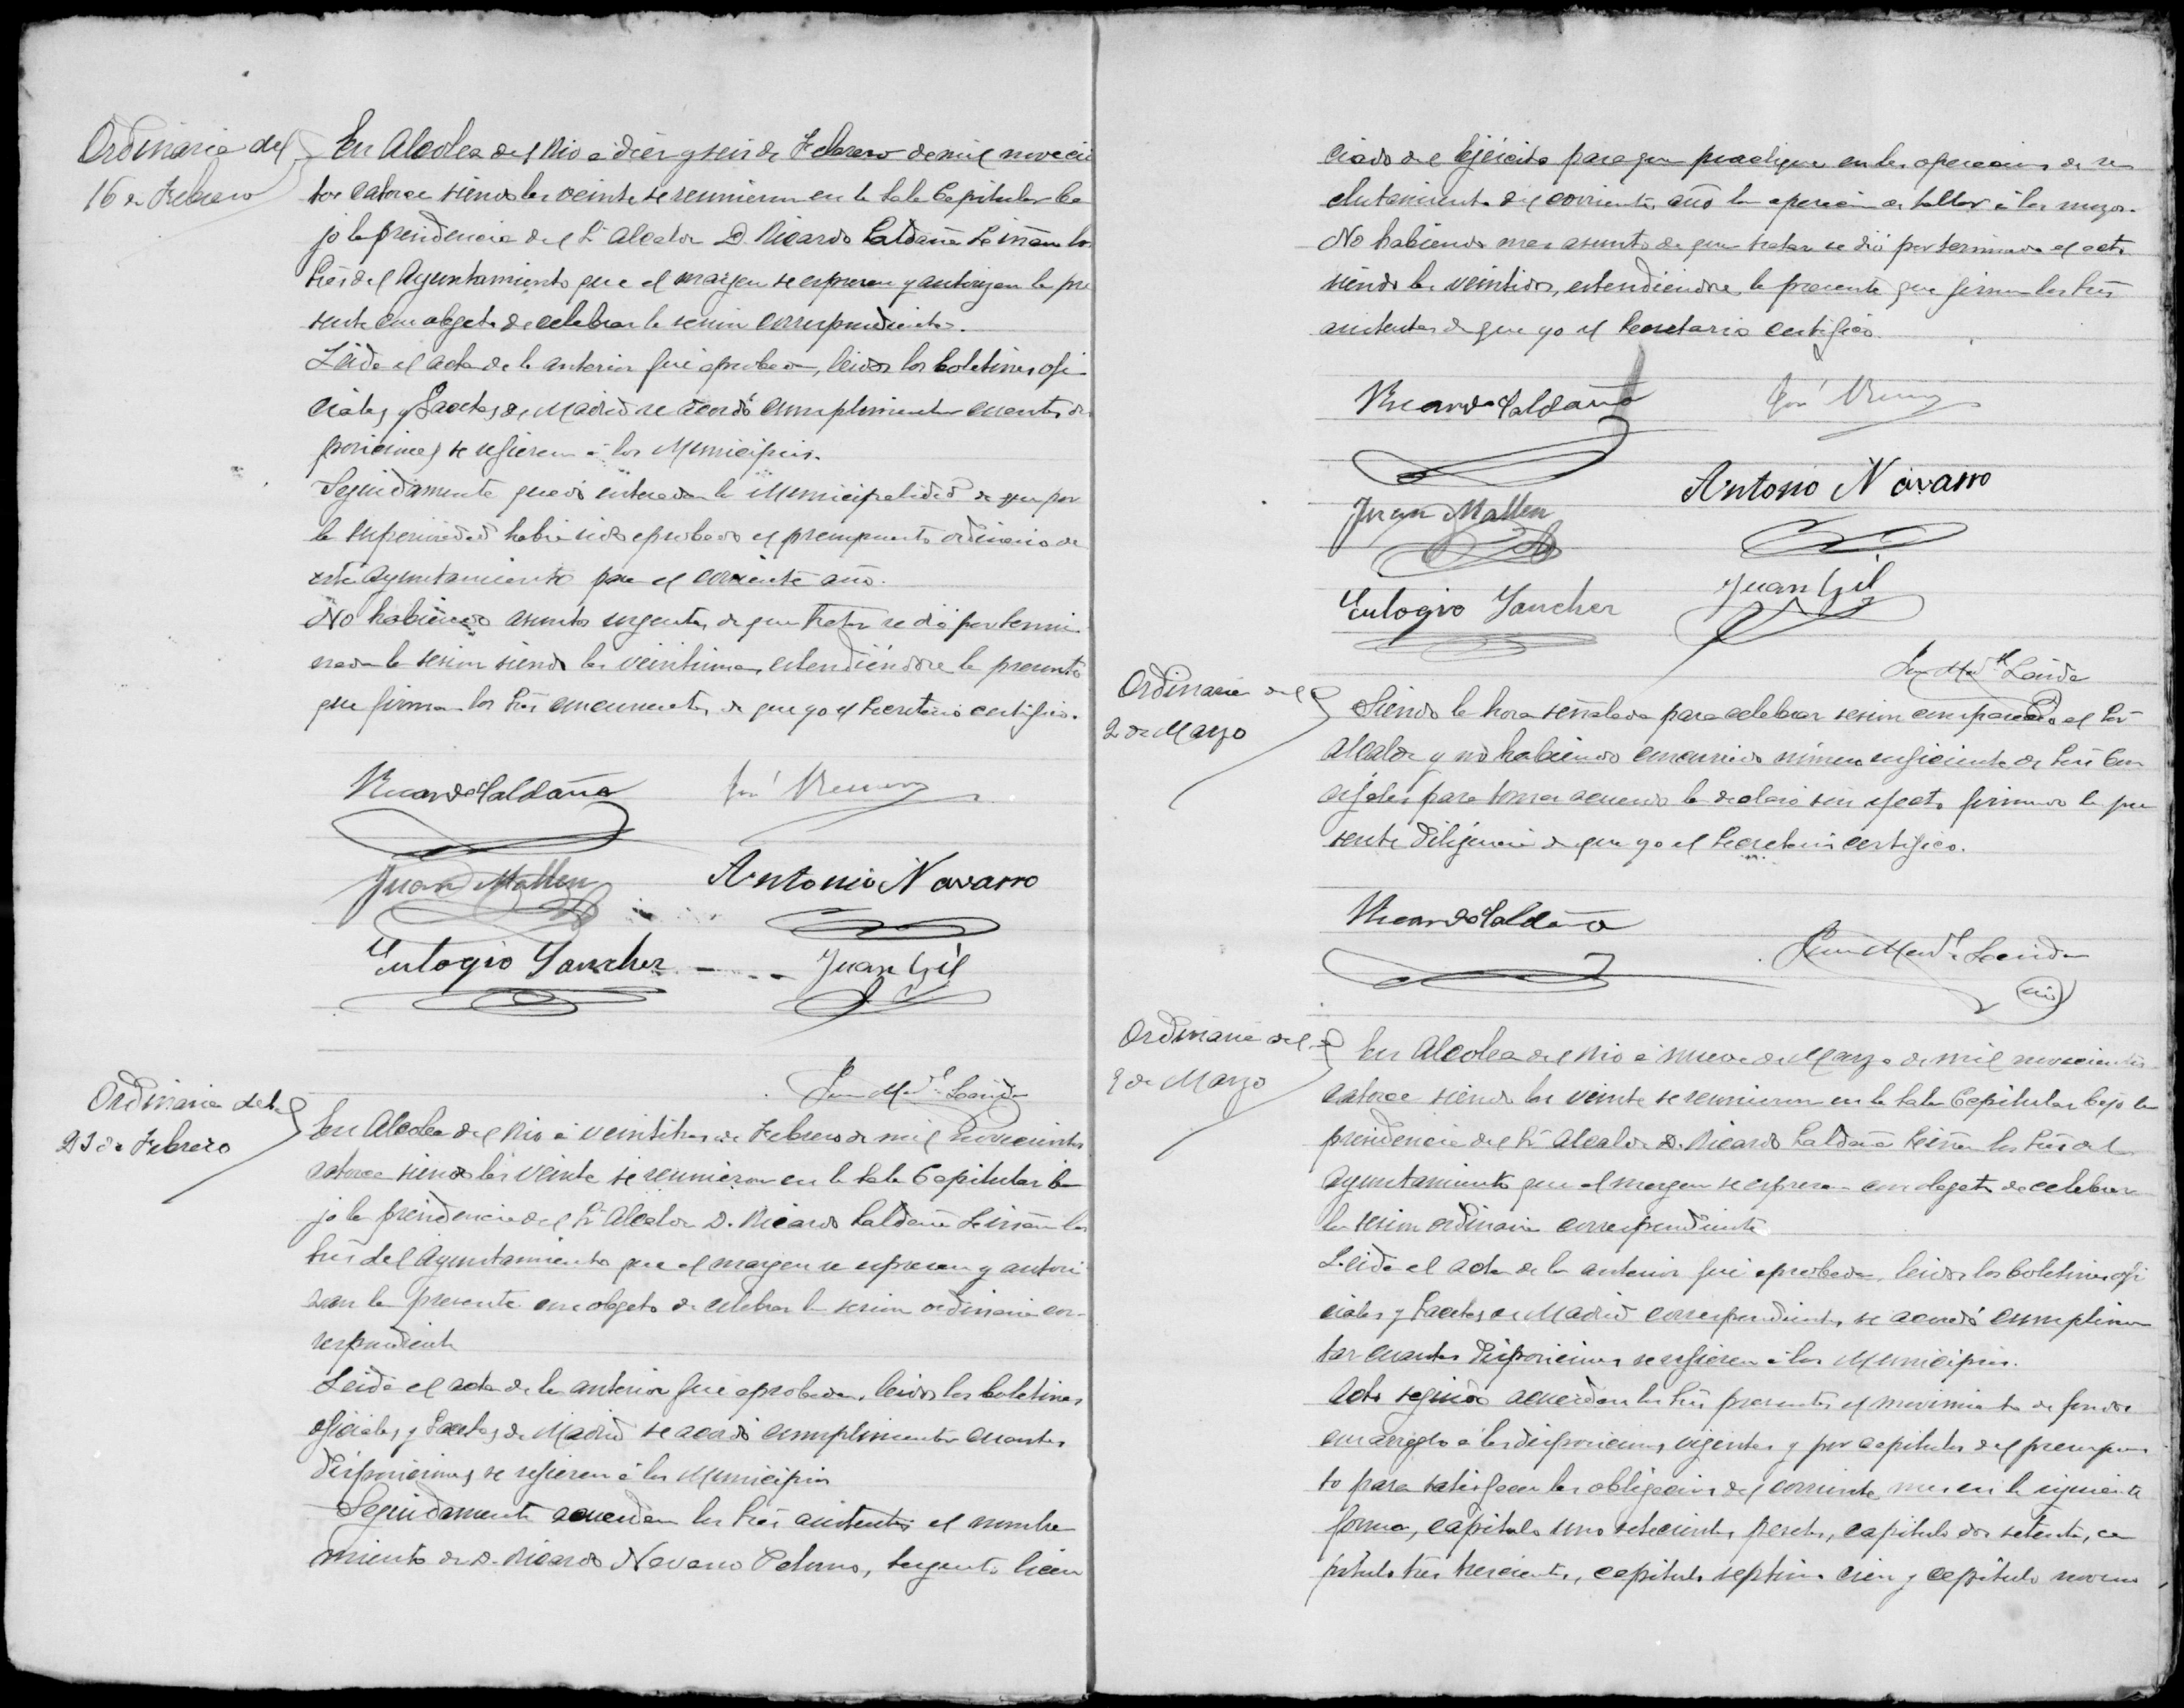 Ordinaria del
16 de Febrero
En Alcolea del Rio á diez y seis de Febrero de mil novecien
tos catorce siendo las veinte se reunieron en la Sala Capitular ba
jo la presidencia del Sr Alcalde D. Ricardo Saldaña los
Sres del Ayuntamiento que al margen se espresan y autorizan la pre
sente con objeto de celebrar la sesion correspondiente.
Leida el acta de la anterior fué aprobada, leidos los boletines ofi
ciales y Gacetas de Madrid se acordó cumplimentar cuantas dis
posiciones se refieren á los Municipios.
Seguidamente quedó enterada la Municipalidad de que por
la superioridad habia sido aprobado el presupuesto ordinario de
este Ayuntamiento para el corriente año.
No habiendo asunto urgente de que tratar se dió por termi
nada la sesion siendo las veintiuna, estendiéndose la presente
que firman los Sres concurrentes, de que yo el Secretario certifico.
Ricardo Saldaña
José
Juan Mallen
Antonio Navarro
Eulogio Sanchez
Juan Gil
Ordinaria del
23 de Febrero
En Alcolea del Rio á veintitres de Febrero de mil novecientos
catorce siendo las veinte se reunieron en la Sala Capitular ba
jo la presidencia del Sr Alcalde D. Ricardo Saldaña los
Sres del Ayuntamiento que al margen se espresan y autori
zan la presente con objeto de celebrar la sesion ordinaria cor-
respondiente
Leida el acta de la anterior fué aprobada, leidos los boletines
oficiales y Gacetas de Madrid se acordó cumplimentar cuantas
disposiciones se refieren á los Municipios
Seguidamente acuerdan los Sres asistentes el nombra
miento de D. Ricardo Navarro Palomo, Sargento licen
ciado del Ejército para que practique en las operaciones de re
clutamiento del corriente año la operacion de tallar á los mozos.
No habiendo mas asunto de que tratar se dió por terminado el acto
siendo las veintidos, estendiendose la presente que firman los Sres
asistentes de que yo el Secretario certifico.
Ricardo Saldaña
José
Juan Mallen
Antonio Navarro
Eulogio Sanchez
Juan Gil
Ordinaria del
2 de Marzo
Siendo la hora señalada para celebrar sesion compareció el Sr
Alcalde y no habiendo concurrido número suficiente de Sres Con
cejales para tomar acuerdo la declaró sin efecto firmando la pre
sente diligencia de que yo el Secretario certifico.
Ricardo Saldaña
Ordinaria del
9 de Marzo
En Alcolea del Rio á nueve de Marzo de mil novecientos
catorce siendo las veinte se reunieron en la Sala Capitular bajo la
presidencia del Sr Alcalde D. Ricardo Saldaña los Sres del
Ayuntamiento que al margen se espresan con objeto de celebrar
la sesion ordinaria correspondiente
Leida el acta de la anterior fué aprobada, leidos los boletines ofi
ciales y Gacetas de Madrid correspondientes, se acordó cumplimen
tar cuantas disposiciones se refieren á los Municipios.
Acto seguido acuerdan los Sres presentes el movimiento de fondos
con arreglo á las disposiciones vigentes y por capitulos del presupues
to para satisfacer las obligaciones del corriente mes en la siguiente
forma, capitulo uno setecientas pesetas, capitulo dos setenta, ca
pitulo tres trescientas, capitulo septimo cien y capitulo noveno